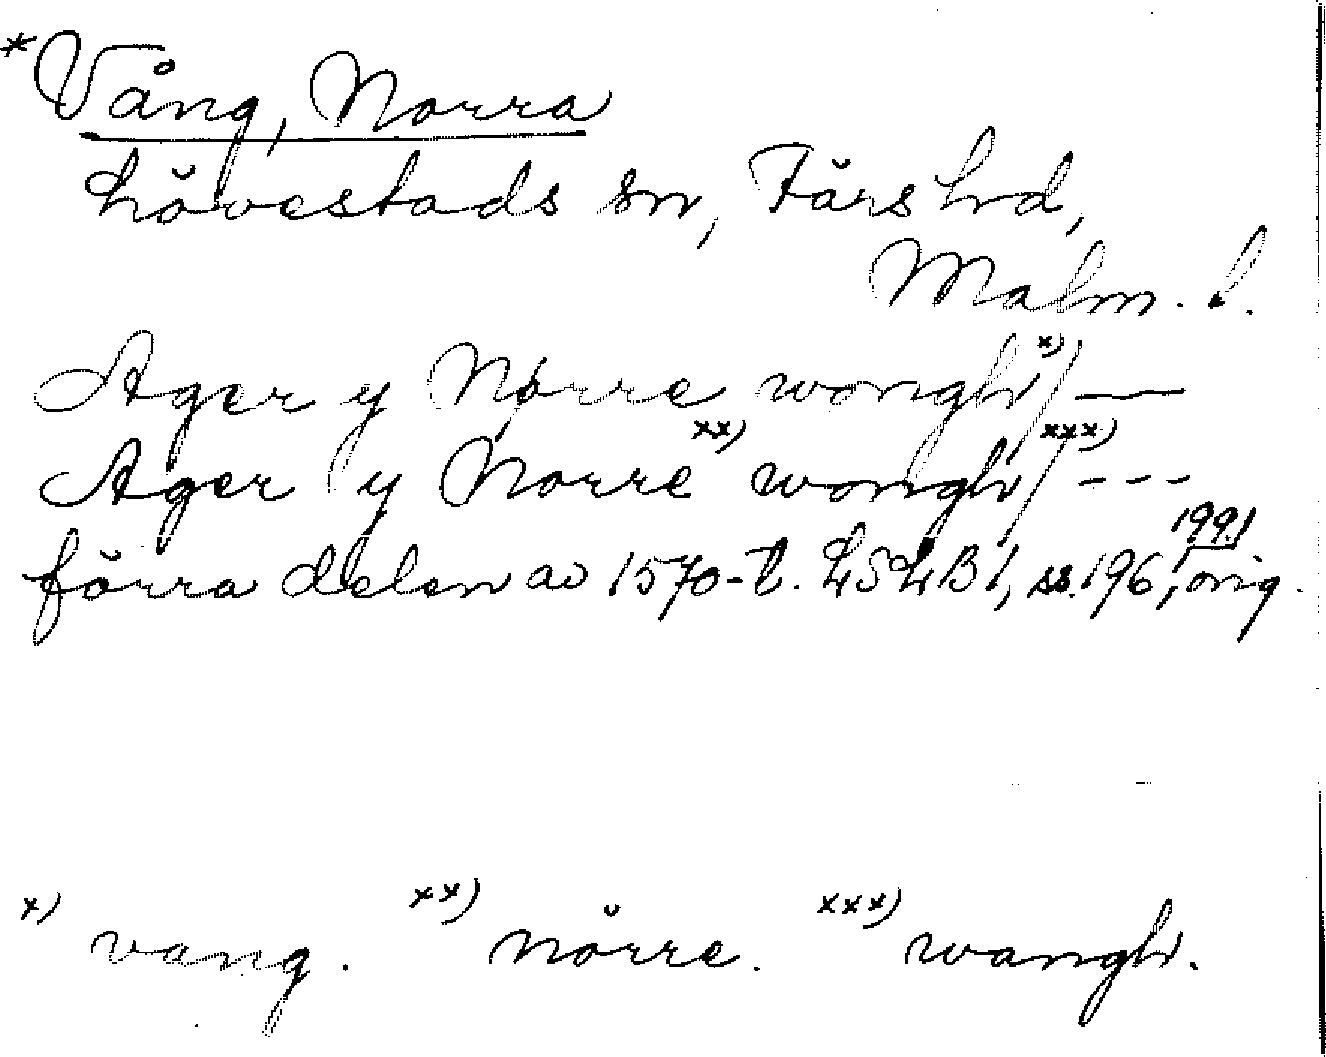 *Vång, Norra
Lövestads sn, Färs hd,
Malm. l.
Ager y Nørre wongh x) / —
Ager y Norre xx) wongh / xxx) ---
förra delen av 1570-t. LSLB 1, ss. 196, 199, orig.
x) vang. xx) nörre. xxx) wangh.